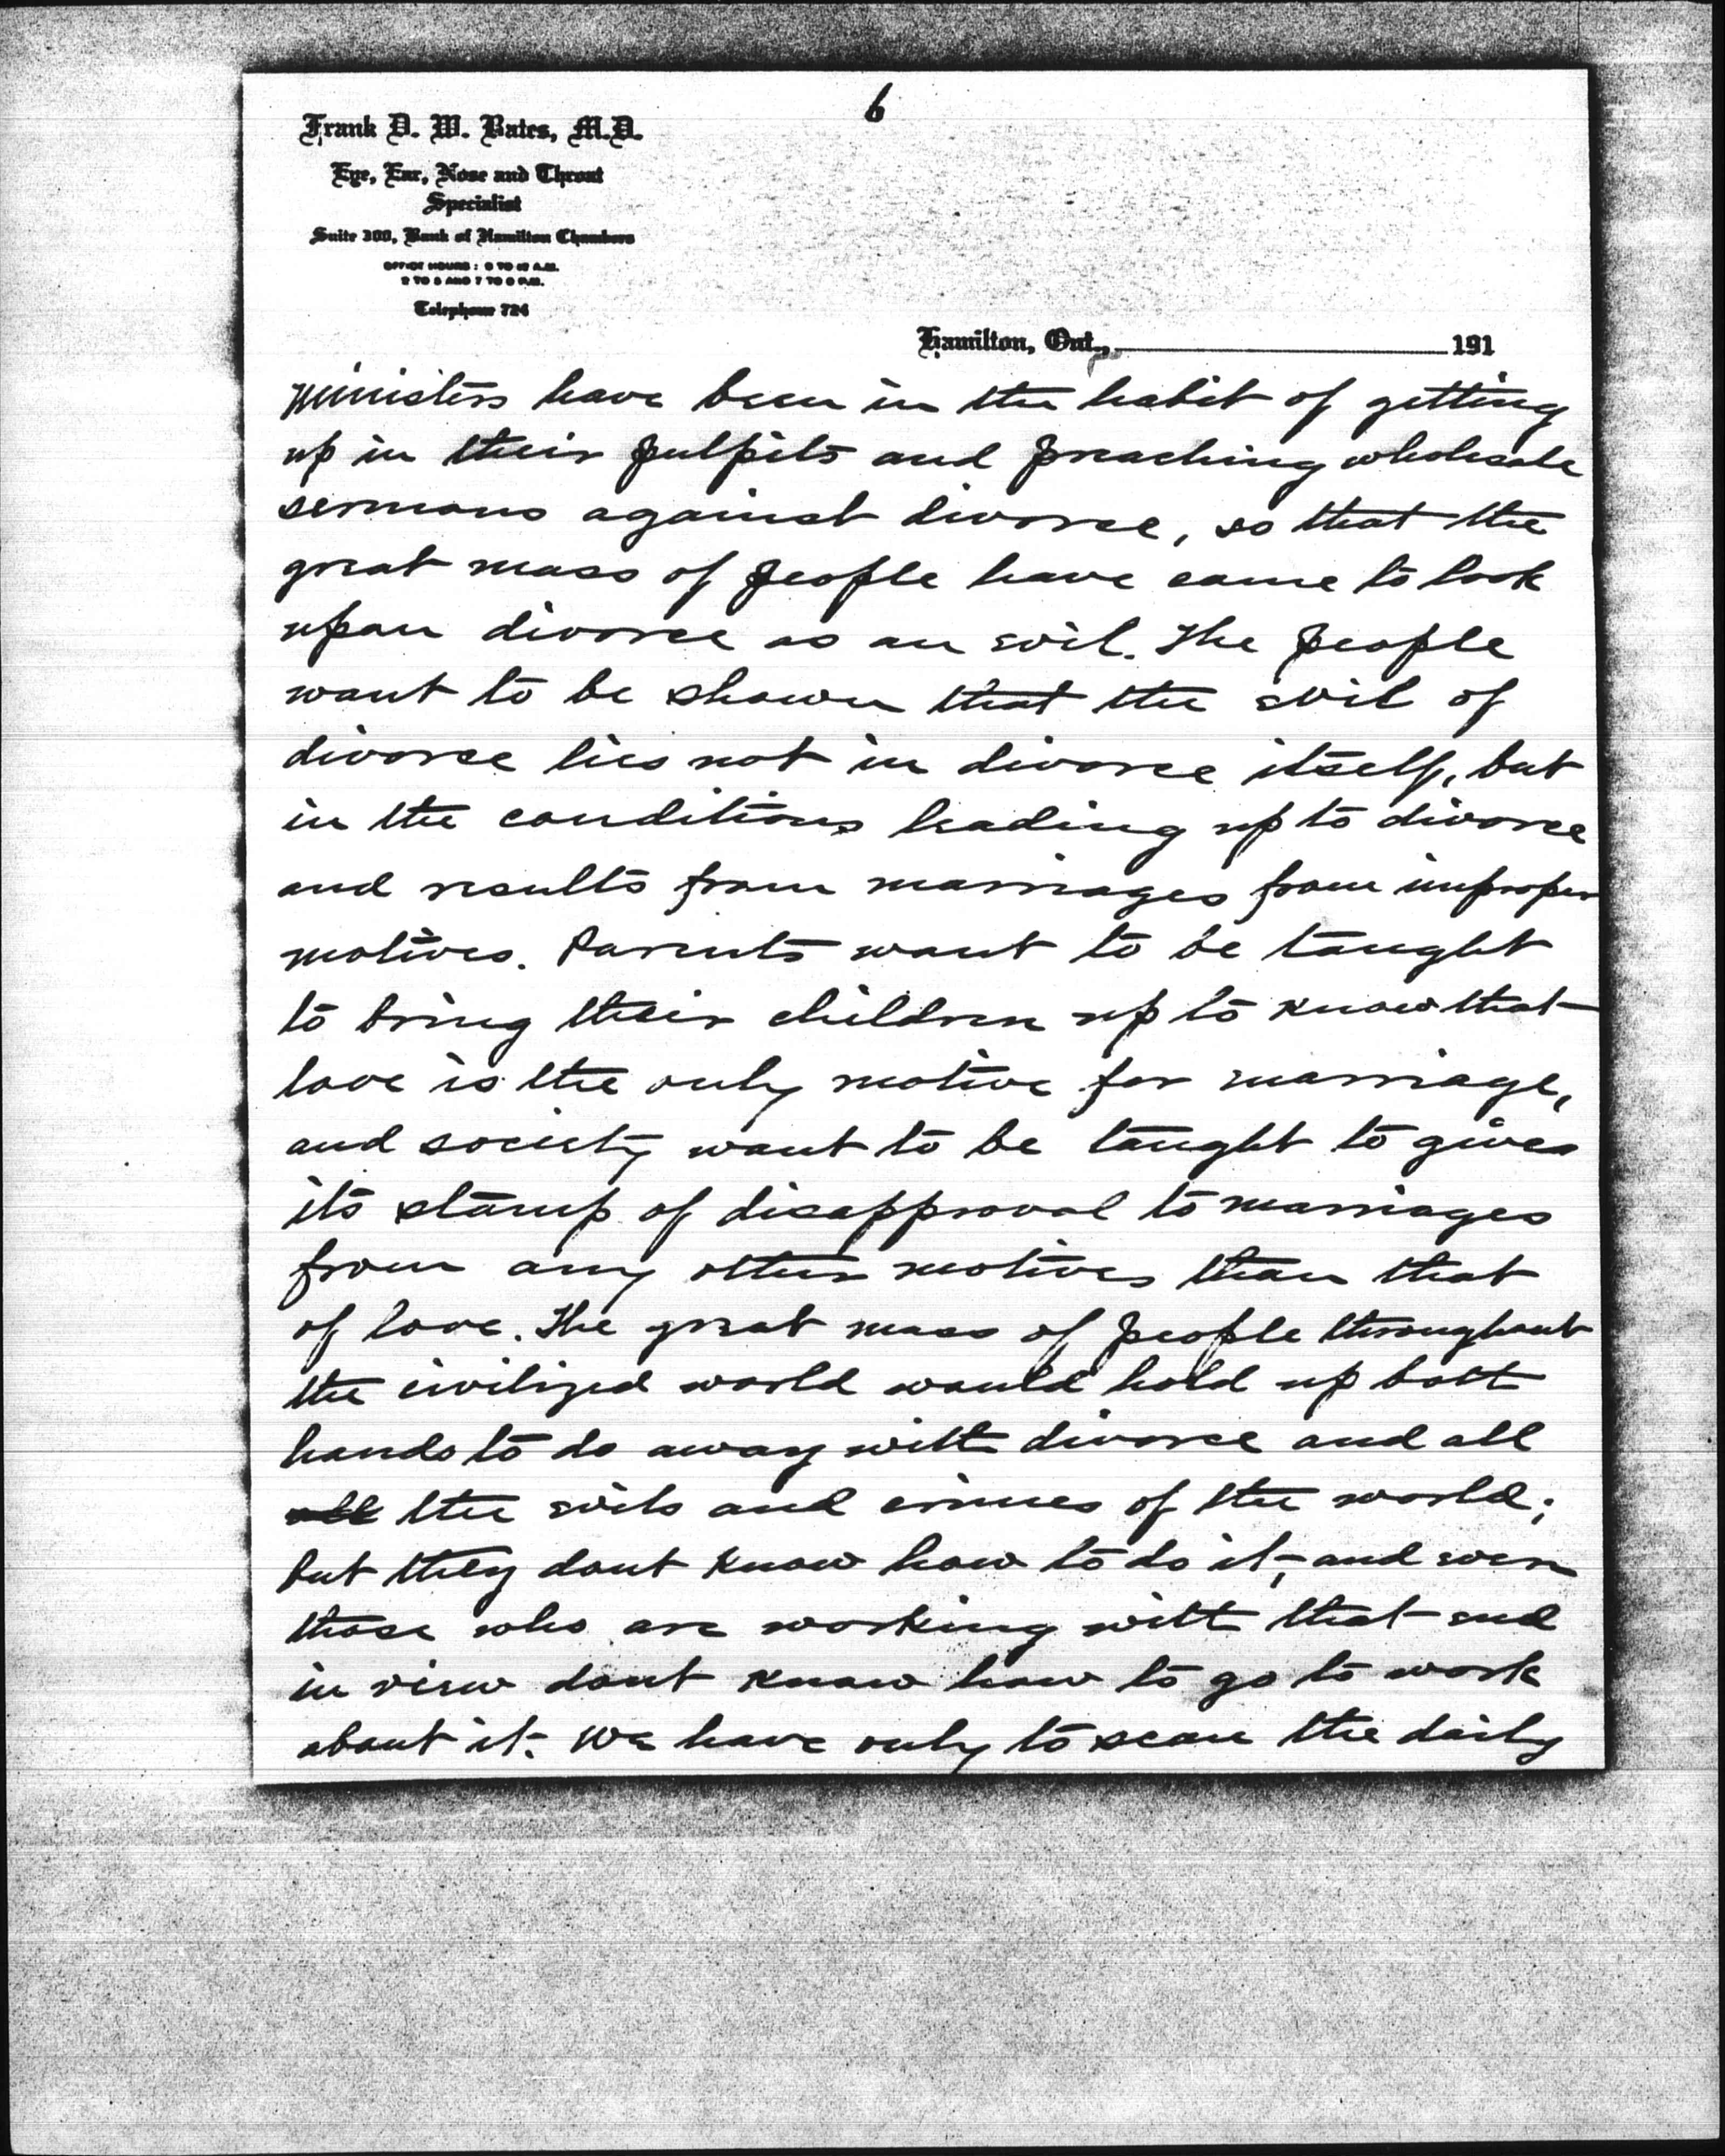 6
Frank D. W. Bates, M.D.
Eye, Ear, Nose and Throat
Specialist
Suite 300, Bank of Hamilton Chambers
OFFICE HOURS: 9 TO 12 A.M.
2 TO 5 AND 7 TO 8 P.M.
Telephone 724
Hamilton, Ont., 191
Ministers have been in the habit of getting
up in their pulpits and preaching wholesale
sermons against divorce, so that the
great mass of people have come to look
upon divorce as an evil. The people
want to be shown that the evil of
divorce lies not in divorce itself, but
in the conditions leading up to divorce
and results from marriages from improper
motives. Parents want to be taught
to bring their children up to know that
love is the only motive for marriage,
and society want to be taught to give
its stamp of disapproval to marriages
from any other motives than that
of love. The great mass of people throughout
the civilized world would hold up both
hands to do away with divorce and all
all the evils and crimes of the world;
but they dont know how to do it, and even
those who are working with that end
in view dont know how to go to work
about it. We have only to scan the daily